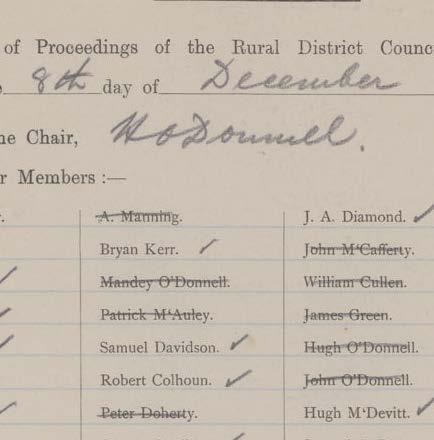 of Proceedings of the Rural District Counc
8th day of December
ne Chair, H O'Donnell.
r Members :—
r. A. Manning. J. A. Diamond.
Bryan Kerr. John M'Cafferty.
Mandey O'Donnell. William Cullen.
Patrick M'Auley. James Green.
Samuel Davidson. Hugh O'Donnell.
Robert Colhoun. John O'Donnell.
Peter Doherty. Hugh M'Devitt.